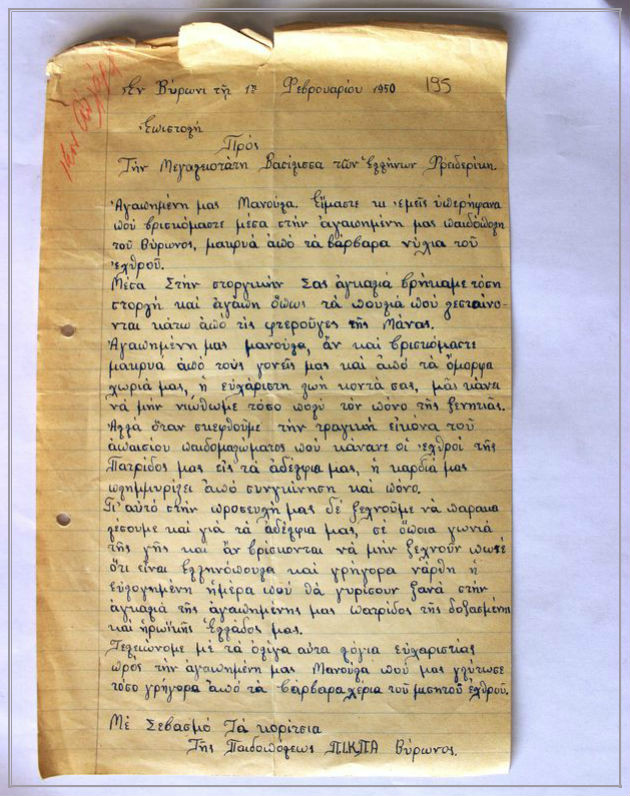 Ἐν Βύρωνι τῇ 1ῃ Φεβρουαρίου 1950 195
Ἐπιστολή
Πρός
Τὴν Μεγαλειοτάτη Βασίλισσα τῶν Ἑλλήνων Φρειδερίκη.
Ἀγαπημένη μας Μανούλα. Εἴμαστε κι ἐμεῖς ὑπερήφανα
ποὺ βρισκόμαστε μέσα στὴν ἀγαπημένη μας παιδόπολη
τοῦ Βύρωνος, μακρυά ἀπὸ τὰ βάρβαρα νύχια τοῦ
ἐχθροῦ.
Μέσα Στὴν στοργικὴν Σας ἀγκαλιά βρήκαμε τόση
στοργὴ καὶ ἀγάπη ὅπως τὰ πουλιά ποὺ ζεσταίνο-
νται κάτω ἀπὸ τὶς φτεροῦγες τῆς Μάνας.
Ἀγαπημένη μας μανούλα, ἄν καὶ βρισκόμαστε
μακρυά ἀπὸ τοὺς γονεῖς μας καὶ ἀπὸ τὰ ὄμορφα
χωριά μας, ἡ εὐχάριστη ζωὴ κοντά σας, μᾶς κάνει
νὰ μὴν νιώθωμε τόσο πολὺ τὸν πόνο τῆς ξενητιᾶς.
Ἀλλά ὅταν σκεφθοῦμε τὴν τραγικὴ εἰκόνα τοῦ
ἀπαισίου παιδομαζώματος ποὺ κάνανε οἱ ἐχθροί τῆς
Πατρίδος μας εἰς τὰ ἀδέλφια μας, ἡ καρδιά μας
πλημμυρίζει ἀπὸ συγκίνηση καὶ πόνο.
Γι' αὐτό στὴν προσευχή μας δέ ξεχνοῦμε νὰ παρακα
λέσουμε καὶ γιά τὰ ἀδέλφια μας, σέ ὅποια γωνιά
τῆς γῆς καὶ ἄν βρίσκονται νὰ μὴν ξεχνοῦν ποτέ
ὅτι εἶναι Ἑλληνόπουλα καὶ γρήγορα νἄρθη ἡ
εὐλογημένη ἡμέρα ποὺ θὰ γυρίσουν ξανά στὴν
ἀγκαλιά τῆς ἀγαπημένης μας πατρίδος τῆς δοξασμένης
καὶ ἡρωϊκῆς Ἑλλάδος μας.
Τελειώνομε μὲ τὰ ὀλίγα αὐτα λόγια εὐχαριστίας
πρὸς τὴν ἀγαπημένη μας Μανούλα ποὺ μας γλύτωσε
τόσο γρήγορα ἀπὸ τὰ βάρβαρα χέρια τοῦ μισητοῦ ἐχθροῦ.
Μὲ Σεβασμό Τὰ κορίτσια
Τῆς Παιδοπόλεως ΠΙΚΠΑ Βύρωνος.